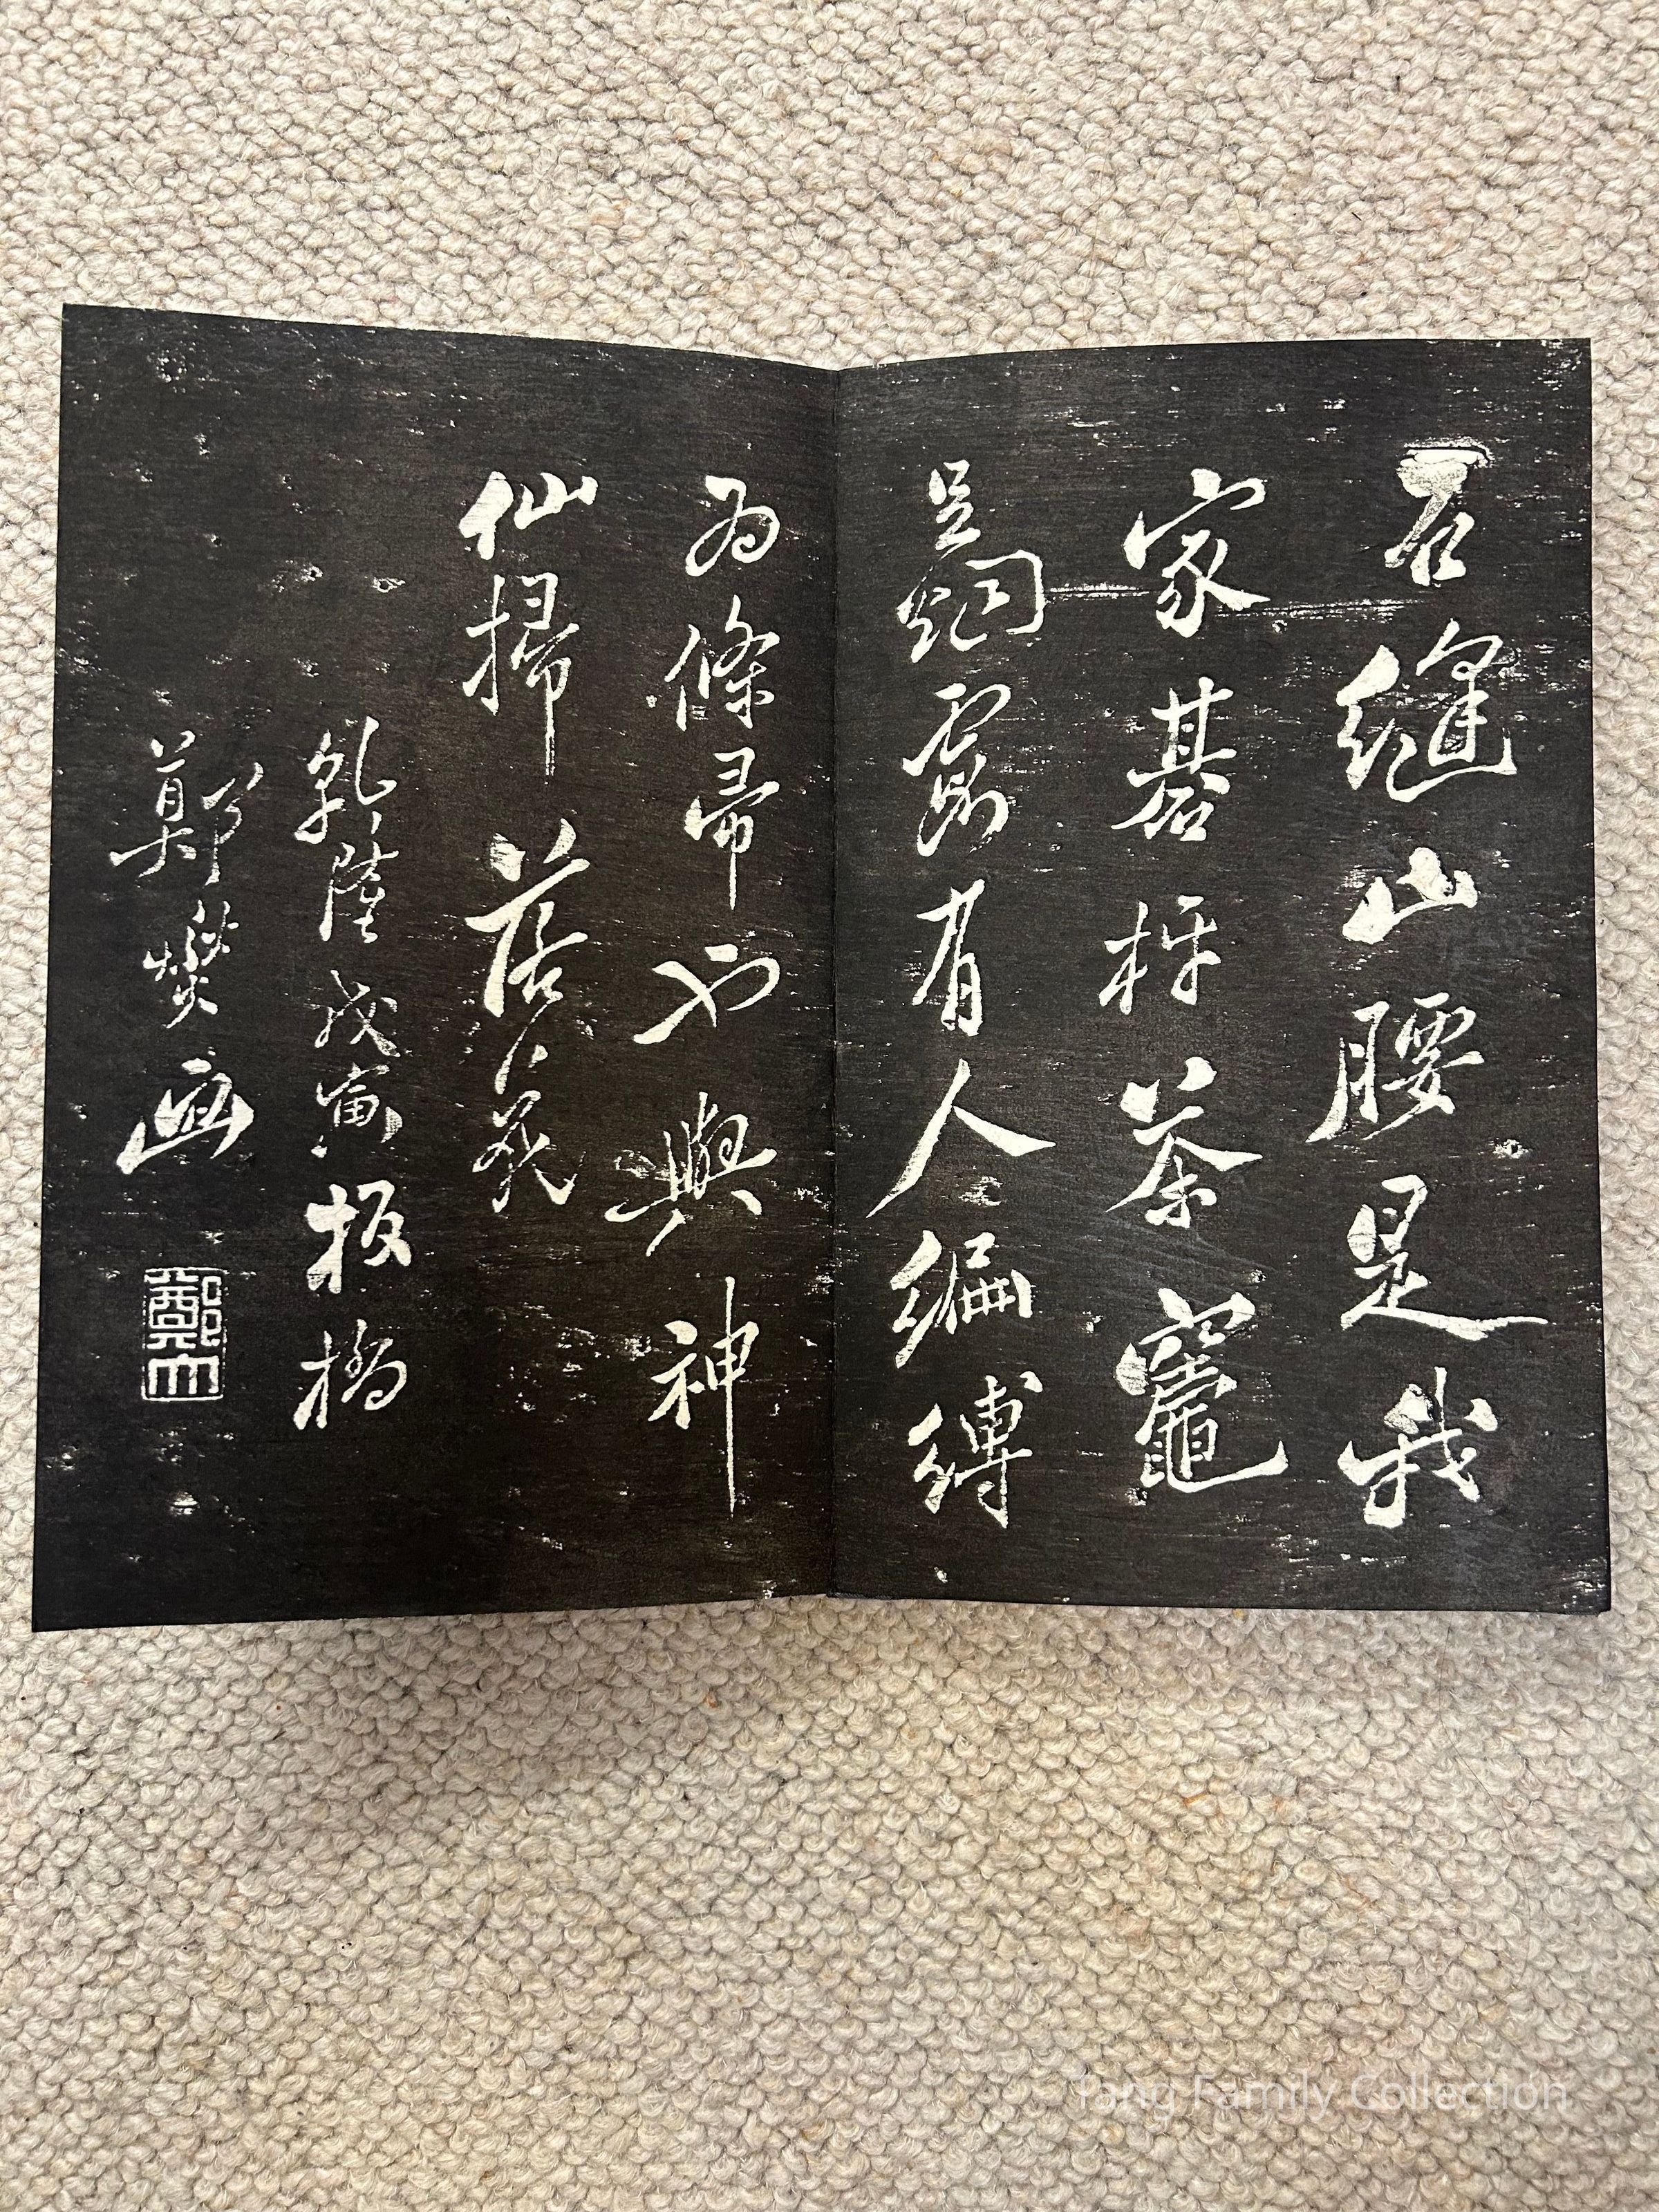 石縫山腰是我
家碁枰茶竈
足烟霞有人編縛
為條帚也與神
仙掃落花
乾隆戊寅板橋
鄭燮画
鄭大
Tang Family Collection